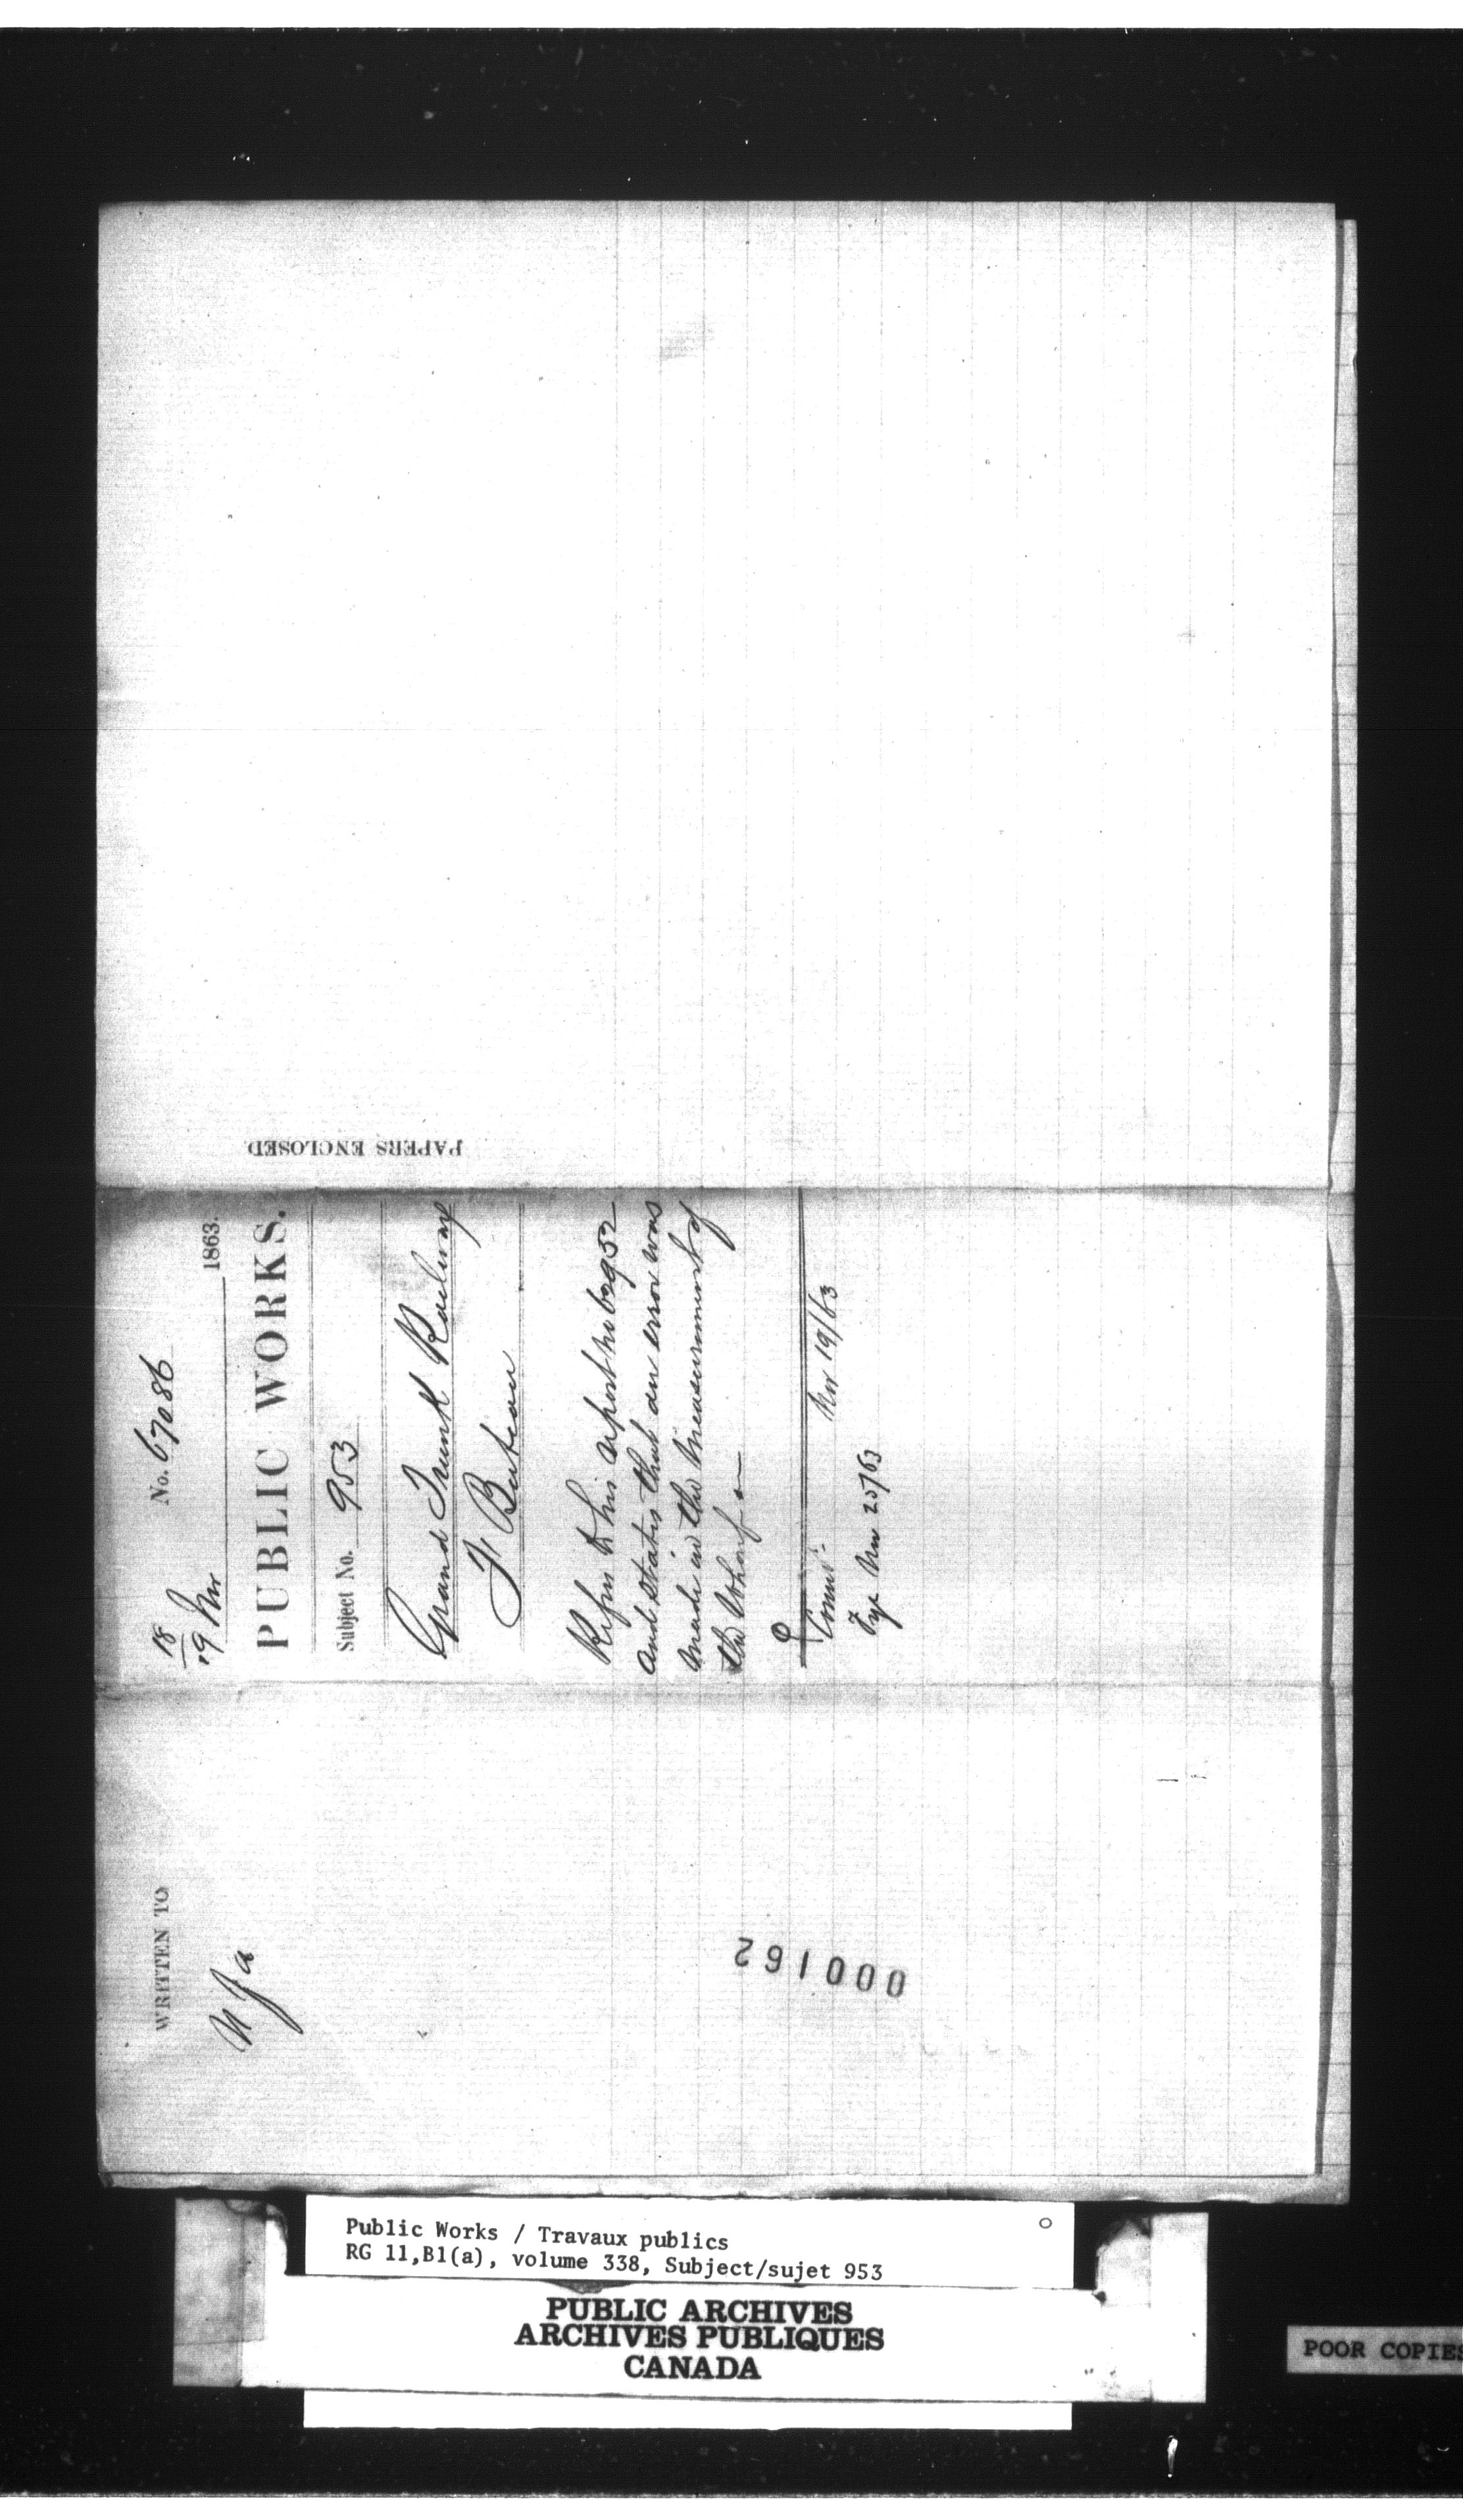 PAPERS ENCLOSED
18
19 Nov 1863.
No. 67086
PUBLIC WORKS.
Subject No. 953
Grand Trunk Railway
F Buteau
Refers to his report no 66952
and states that an error was
made in the Measurement of
the Wharf
Nov 19/63
Nov 25/63
WRITTEN TO
000162
Public Works / Travaux publics
RG 11,B1(a), volume 338, Subject/sujet 953
PUBLIC ARCHIVES
ARCHIVES PUBLIQUES
CANADA
POOR COPIES